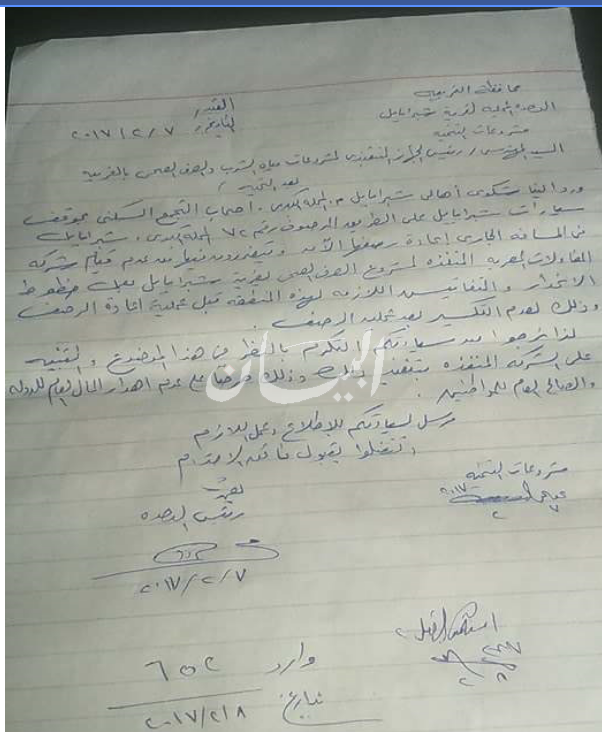 محافظة الغربية
الوحدة المحلية لقرية شبرابابل
القيد /
مشروعات التنمية
التاريخ / ٢٠١٧/٢/٧
السيد المهندس / رئيس الجهاز التنفيذى لمشروعات مياه الشرب والصرف الصحى بالغربية
بعد التحية /
ورد إلينا شكوى أهالى شبرابابل م. المحلة الكبرى. أصحاب التجمع السكنى بموقف
سيارات شبرابابل على الطريق المرصوف رقم ٧٢ المحلة الكبرى. شبرابابل
فى المسافة الجارى إعادة رصفها الآن ويتضررون فيها من عدم قيام شركة
المقاولات المصرية المنفذة لمشروع الصرف الصحى بقرية شبرابابل بعمل خطوط
الانحدار والتفاتيش اللازمة لهذه المنطقة قبل عملية إعادة الرصف
وذلك لعدم التكسير بعد عملية الرصف.
لذا نرجوا من سيادتكم التكرم بالنظر فى هذا الموضوع والتنبيه
على الشركة المنفذة بتنفيذ ذلك وذلك حرصا على عدم اهدار المال العام للدولة
والصالح العام للمواطنين.
مرسل لسيادتكم للإطلاع وعمل اللازم
وتفضلوا بقبول فائق الاحترام
مشروعات التنمية
رئيس الوحدة
٢٠١٧/٢/٧
وارد ٦٥٢
بتاريخ ٢٠١٧/٢/٨
البيان